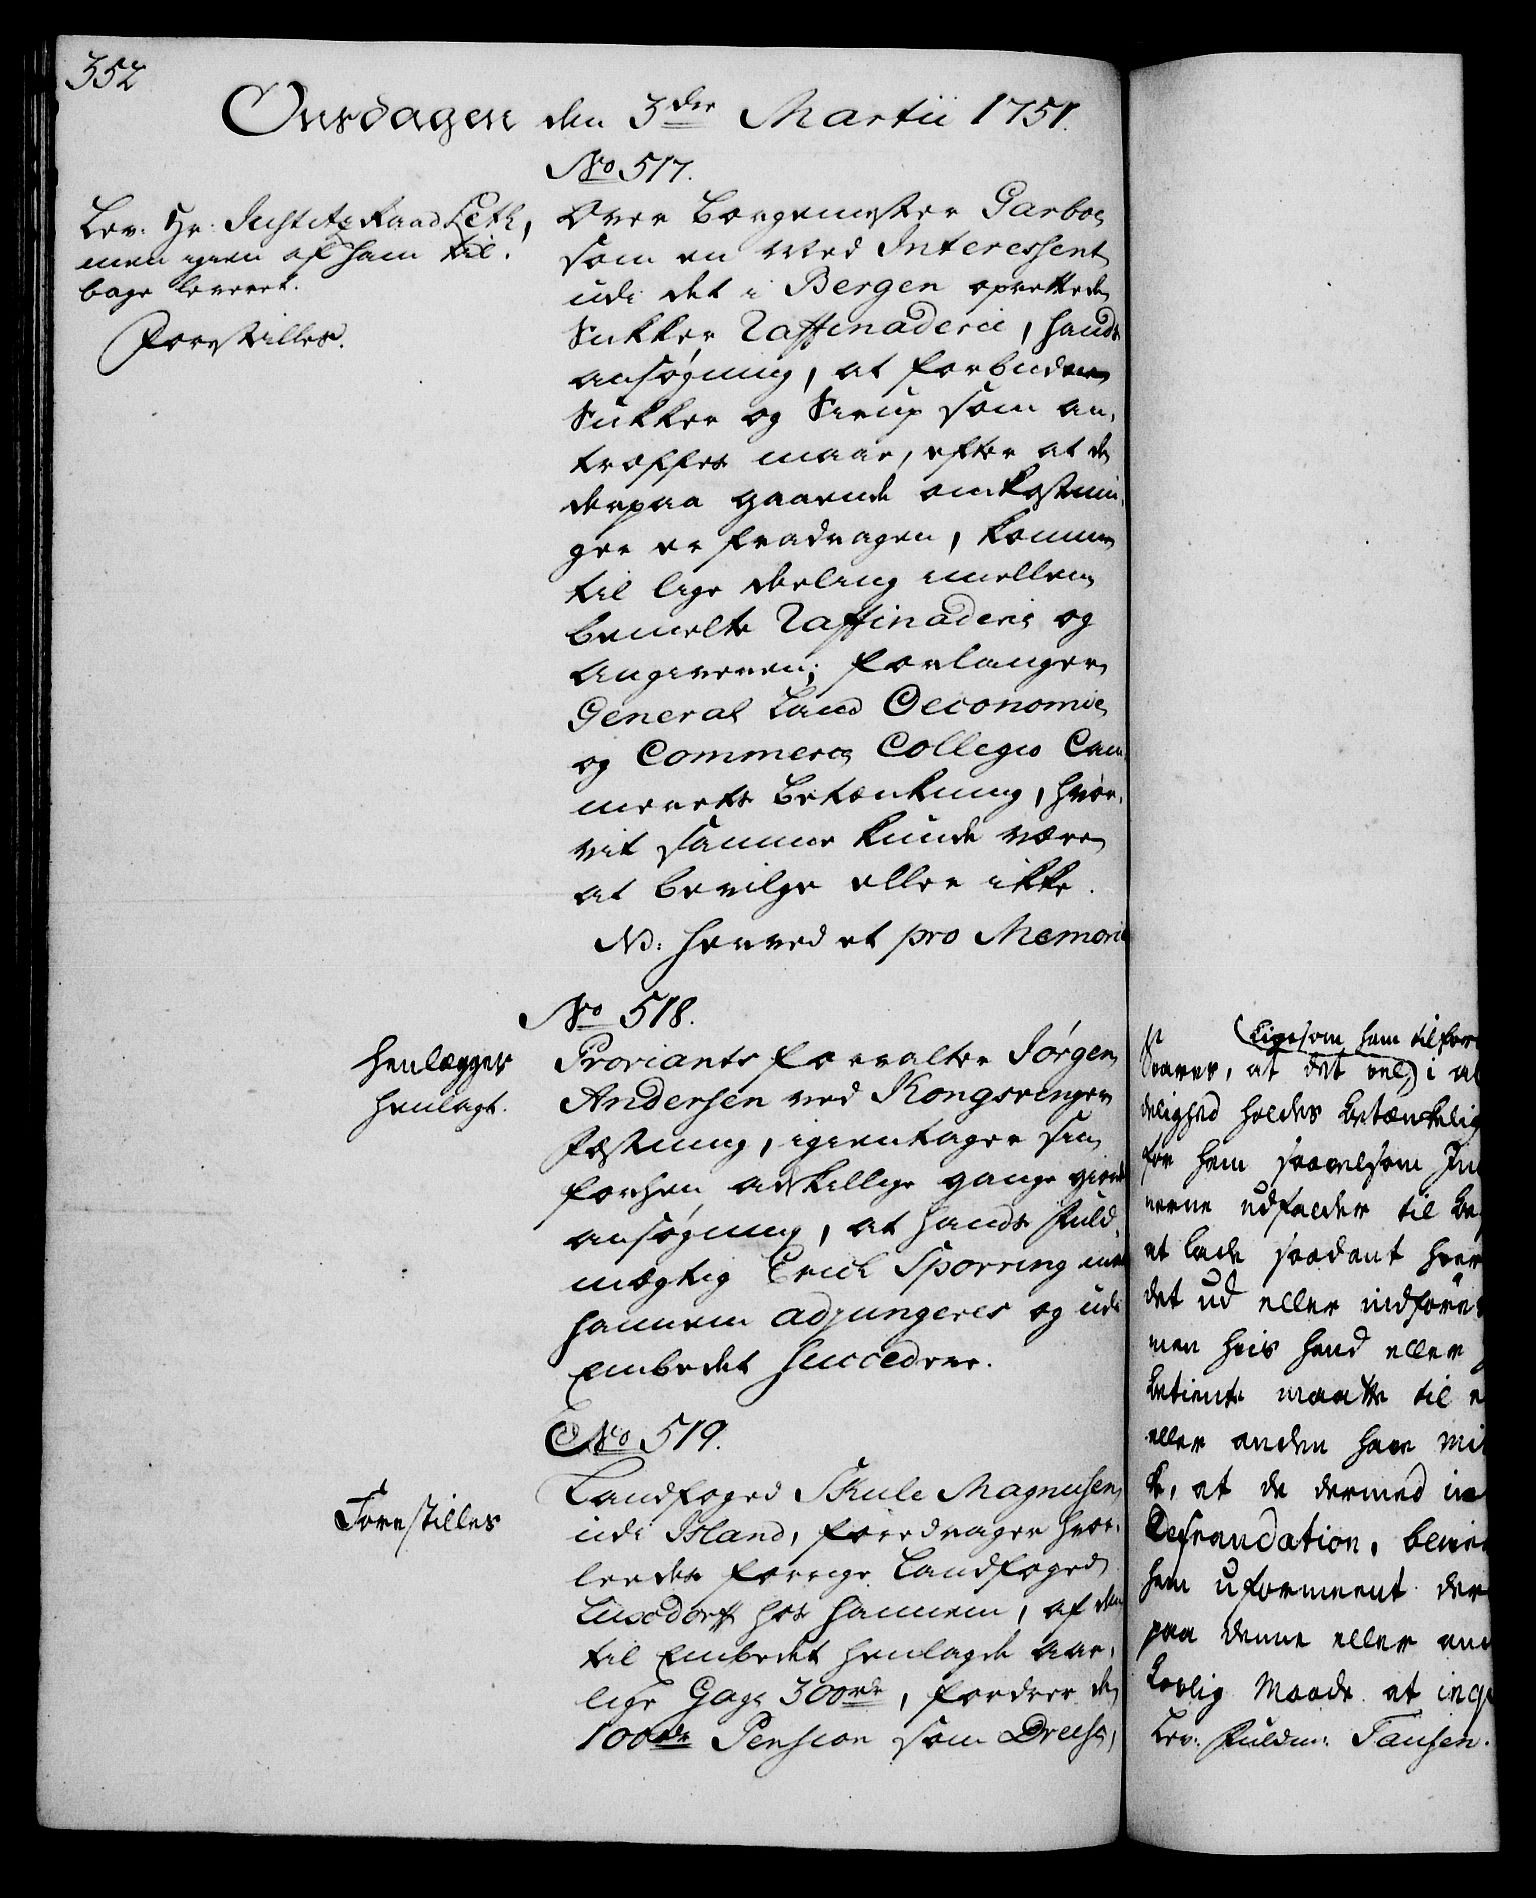 352
Onsdagen den 3die Martii 1751.
No 517.
Lev: Hr: Justitz Raad Leth,
men igien af ham til-
bage leveret.
Forestilles.
Over Borgemester Garboe
som en Med Interessent
udi det i Bergen oprettede
Sukker Raffinaderie, hands
ansøgning, at forbudene
Sukker og Sirup som an-
træffes maae, efter at de
derpaa gaaende omkostnin-
ger er fradragen, komme
til lige deeling imellem
bemelte Raffinaderie og
Angiveren; forlanger
General Land Oeconomie
og Commerce Collegio Cam-
merets Betænkning, hvor-
vit samme kunde være
at bevilge eller ikke.
NB: herved et pro Memoria
No 518.
Henlægges
henlagt.
Proviants forvalter Jørgen
Andersen ved Kongsvinger
Fæstning, igientager sin
forhen adskillige gange giorde
ansøgning, at hands Fuld-
mægtig Erich Sporring maa
hannem adjungeres og udi
Embedet succedere.
No 519.
Forestilles
Landfoged Skule Magnusen
udi Island, foredrager hvor-
leedes forrige Landfoged
Luxdorff hos hannem, af den
til Embedet henlagde aar-
lige Gage 300rdr, fordrer de
100rdr Pension som Dreise,
(Ligesom ham tilfor
Svares, at det vel) i al
delighed holdes betænkelig
for ham saavelsom In
nerne udfalder til be
at lade saadant hver
det ud eller indføre
men hvis hand eller
betiente maatte til e
eller anden have mi
ke, at de dermed in
Defraudation, bliver
ham uformeent der
paa denne eller an
lovlig Maade at ing
Lev: Fuldm: Fansen.